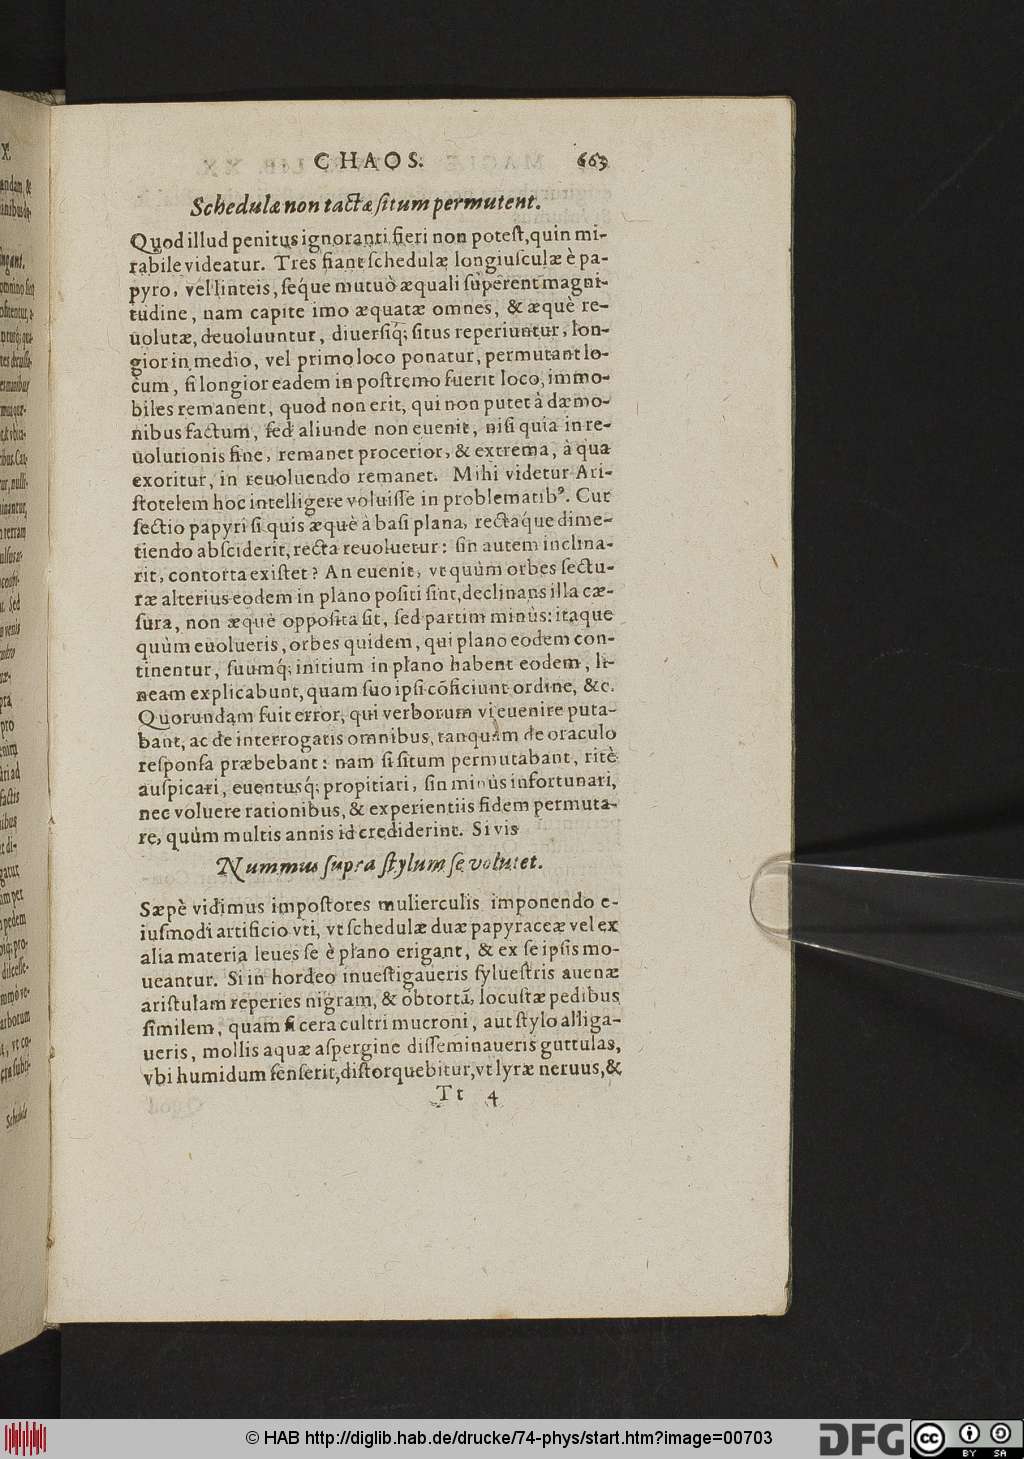 CHAOS. 663
Schedulæ non tactæ ſitum permutent.
Quod illud penitus ignoranti fieri non poteſt, quin mi-
rabile videatur. Tres fiant ſchedulæ longiuſculæ è pa-
pyro, vel linteis, ſeq́ue mutuò æquali ſuperent magni-
tudine, nam capite imo æquatæ omnes, & æquè re-
uolutæ, deuoluuntur, diuerſiq́; ſitus reperiuntur, lon-
gior in medio, vel primo loco ponatur, permutant lo-
cum, ſi longior eadem in poſtremo fuerit loco, immo-
biles remanent, quod non erit, qui non putet à dæmo-
nibus factum, ſed aliunde non euenit, niſi quia in re-
uolutionis fine, remanet procerior, & extrema, à qua
exoritur, in reuoluendo remanet. Mihi videtur Ari-
ſtotelem hoc intelligere voluiſſe in problematibꝰ. Cur
ſectio papyri ſi quis æquè à baſi plana, rectáque dime-
tiendo abſciderit, recta reuoluetur: ſin autem inclina-
rit, contorta exiſtet? An euenit, vt quùm orbes ſectu-
ræ alterius eodem in plano poſiti ſint, declinans illa cæ-
ſura, non æquè oppoſita ſit, ſed partim minùs: itaque
quùm euolueris, orbes quidem, qui plano eodem con-
tinentur, ſuumq́; initium in plano habent eodem, li-
neam explicabunt, quam ſuo ipſi cõficiunt ordine, &c.
Quorundam fuit error, qui verborum vi euenire puta-
bant, ac de interrogatis omnibus, tanquàm de oraculo
reſponſa præbebant: nam ſi ſitum permutabant, ritè
auſpicari, euentusq́; propitiari, ſin minùs infortunari,
nec voluere rationibus, & experientiis fidem permuta-
re, quùm multis annis id crediderint. Si vis
Nummus ſupra ſtylum ſe volutet.
Sæpè vidimus impoſtores mulierculis imponendo e-
iuſmodi artificio vti, vt ſchedulæ duæ papyraceæ vel ex
alia materia leues ſe è plano erigant, & ex ſe ipſis mo-
ueantur. Si in hordeo inueſtigaueris ſylueſtris auenæ
ariſtulam reperies nigram, & obtortã, locuſtæ pedibus
ſimilem, quam ſi cera cultri mucroni, aut ſtylo alliga-
ueris, mollis aquæ aſpergine diſſeminaueris guttulas,
vbi humidum ſenſerit, diſtorquebitur, vt lyræ neruus, &
Tt 4
© HAB http://diglib.hab.de/drucke/74-phys/start.htm?image=00703
DFG
cc BY SA